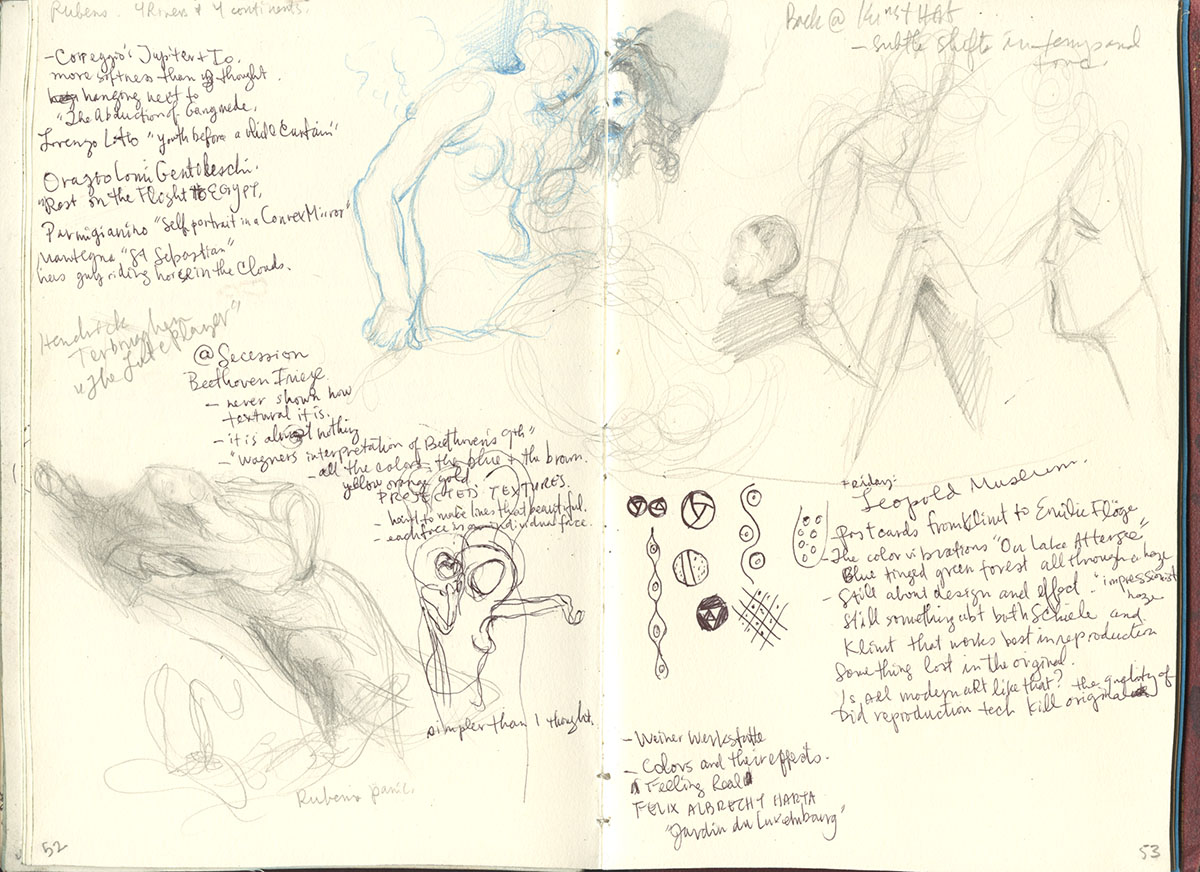 Rubens 4 Rivers & 4 continents.
- Correggio's Jupiter & Io.
more softness than I thought.
hanging next to
"The Abduction of Ganymede.
Lorenzo Lotto "Youth before a White Curtain"
Orazio Lomi Gentileschi.
"Rest on the Flight to EGYPT,
Parmigianino "Self portrait in a Convex Mirror"
Mantegna "St Sebastian"
has guy riding horse in the Clouds.
Hendrick
Terbrugghen
"The Lute Player"
@ Secession
Beethoven Frieze
- never shown how
textural it is.
- it is almost nothing
- "Wagners interpretation of Beethoven's 9th"
- all the colors, the blue & the brown.
yellow orange gold
PROJECTED TEXTURES.
- hard to make lines that beautiful.
- each face is an individual face.
simpler than I thought.
Rubens panic.
52
Back @ Kunst Hst
- subtle shifts in temp and
tone.
Friday:
Leopold Museum.
Postcards from Klimt to Emilie Flöge
- The color vibrations "On Lake Attersee"
Blue tinged green forest all through a haze
- Still about design and effect - "impressionist
haze
Still something abt both Schiele and
Klimt that works best in reproduction
Something lost in the original.
Is all modern art like that?
Did reproduction tech kill the quality of originals
- Weiner Werkstatte
- Colors and their effects.
Feeling Real
FELIX ALBRECHT HARTA
"Jardin du Luxembourg"
53